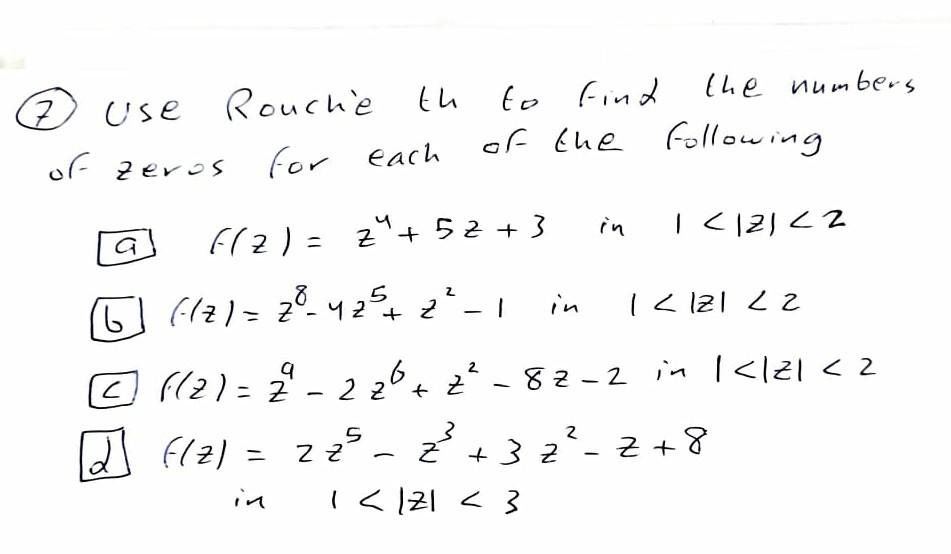 7 Use Rouch'e th to find the numbers
of zeros for each of the following
a f(z) = z⁴ + 5z + 3 in 1 < |z| < 2
b f(z) = z⁸ - 4z⁵ + z² - 1 in 1 < |z| < 2
c f(z) = z⁹ - 2z⁶ + z² - 8z - 2 in 1 < |z| < 2
d f(z) = 2z⁵ - z³ + 3z² - z + 8
in 1 < |z| < 3